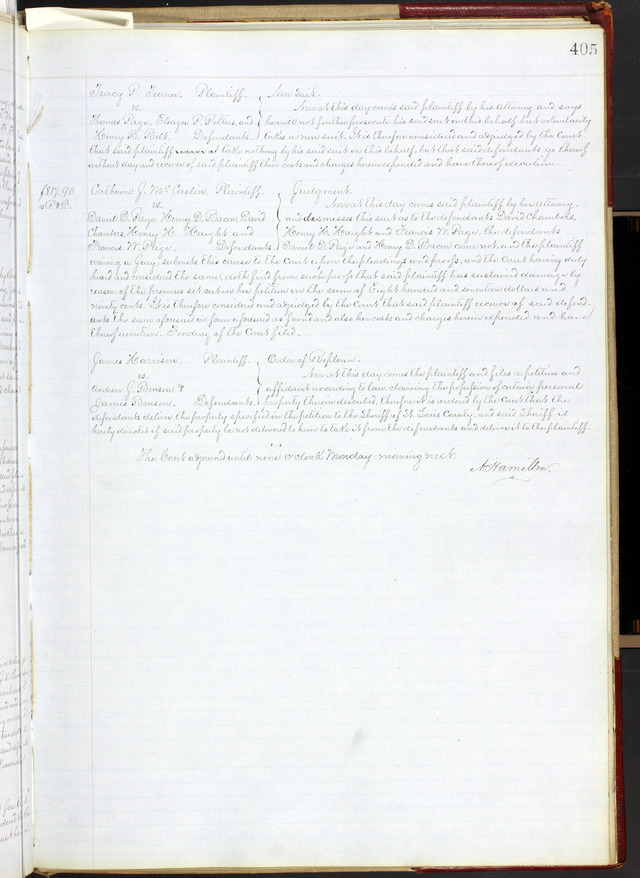 405
Tracy P. Turner, Plaintiff. Non Suit.
vs. Now at this day comes said plaintiff by his Attorney and says
Thomas Page, and he will not further prosecute his said suit in this behalf but voluntarily
Henry B. Belt, Defendants. take a non suit. It is therefore considered and adjudged by the Court
that said plaintiff take nothing by his said suit in this behalf, but that said defendants go thereof
without day and recover of said plaintiff their costs and charges herein expended and have thereof execution.
$817.90 Catherine J. McCaslin, Plaintiff Judgment.
vs. Now at this day comes said plaintiff by her Attorney,
Daniel D. Page, Henry D. Bacon, David and dismisses this suit as to the defendants David Chambers,
Chambers, Henry H. Haight and Henry H. Haight and Francis W. Page, the defendants
Francis W. Page, Defendants Daniel D. Page and Henry D. Bacon come not, and the plaintiff
waiving a Jury, submits this cause to the Court upon the pleadings and proofs, and the Court having duly
heard and considered the same, doth find from such proofs that said plaintiff has sustained damage by
reason of the premises set out in her petition in the sum of Eight hundred and seventeen dollars and
ninety cents. It is therefore considered and adjudged by the Court that said plaintiff recover of said defend-
ants the sum aforesaid in form aforesaid as found and also her costs and charges herein expended and have
thereof execution. Finding of the Court filed.
James Harrison, Plaintiff Order of Replevin.
vs. Now at this day comes the plaintiff and files a petition and
Andrew J. Benson & affidavit according to law, claiming the possession of certain personal
James Benson, Defendants. property therein described, therefore it is ordered by the Court that the
defendants deliver the property specified in the petition to the Sheriff of St. Louis County, and said Sheriff is
hereby directed if said property be not delivered to him to take it from the defendants and deliver it to the plaintiff.
The Court adjourned until nine o'clock Monday morning next.
A Hamilton.